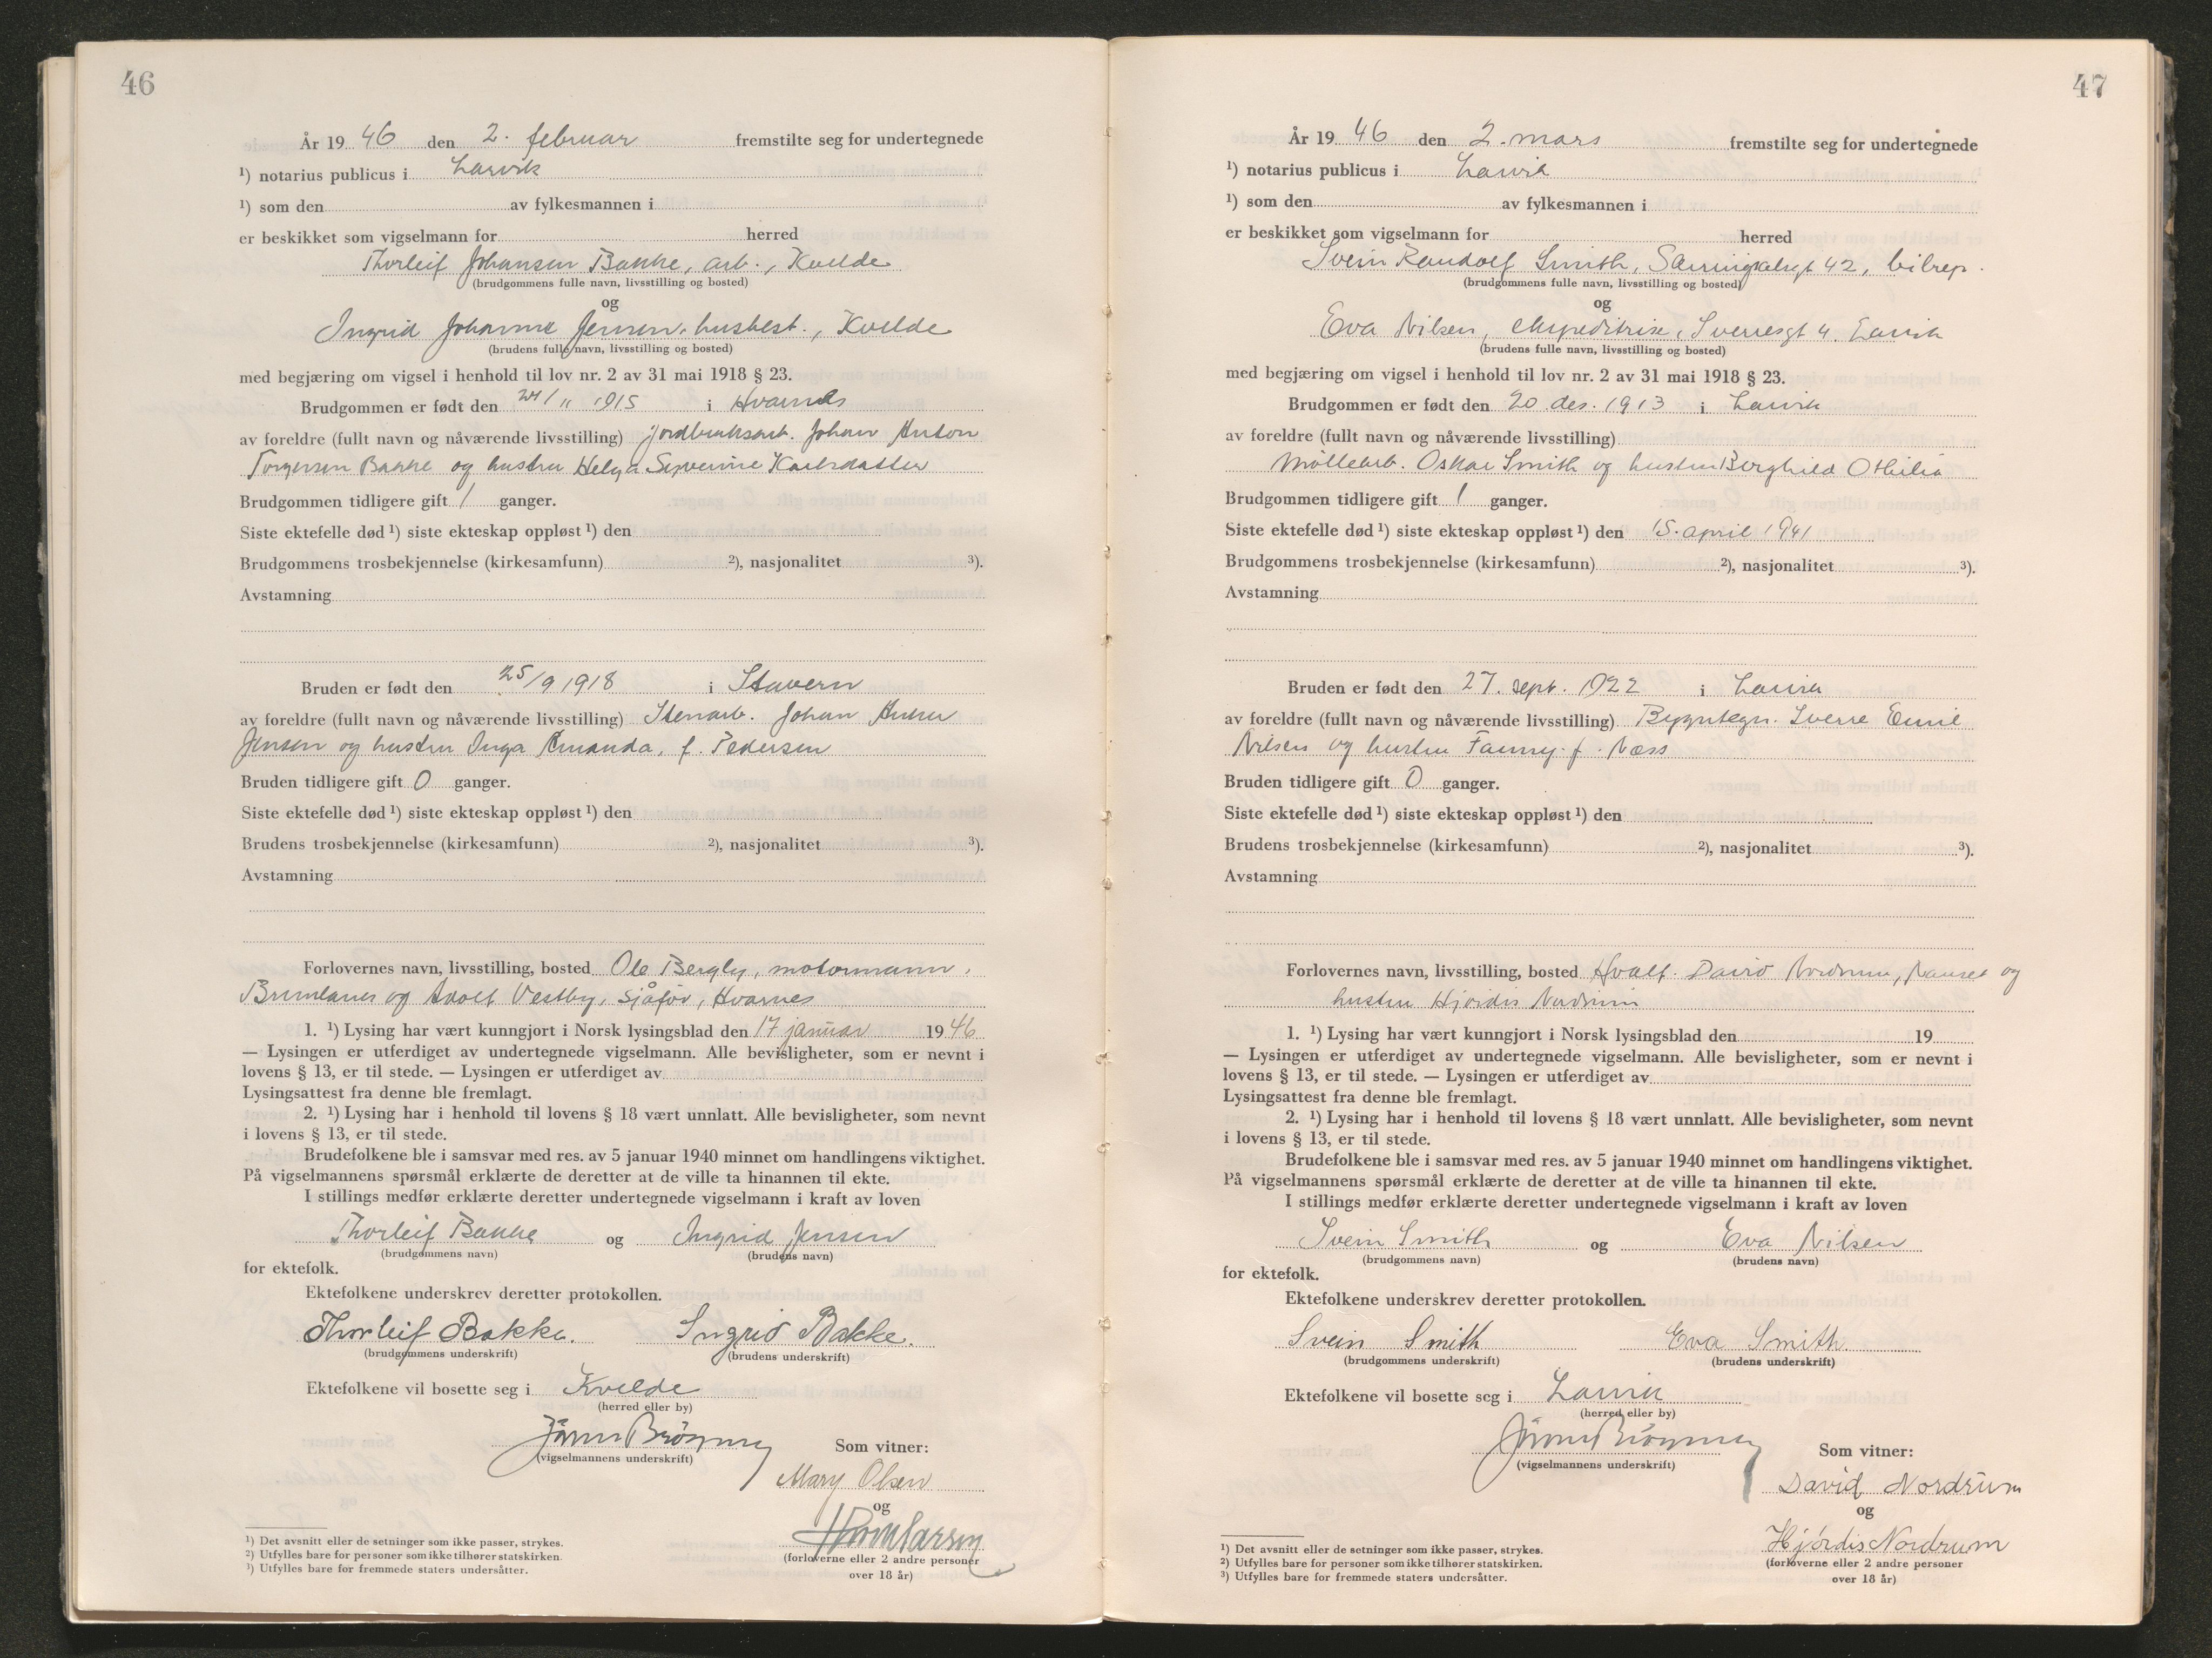 46
År 19 46 den 2. februar fremstilte seg for undertegnede
¹) notarius publicus i Larvik
¹) som den av fylkesmannen i
er beskikket som vigselmann for herred
Thorleif Johansen Bakke, arb., Kvelde
(brudgommens fulle navn, livsstilling og bosted)
og
Ingrid Johanne Jensen, husbest., Kvelde
(brudens fulle navn, livsstilling og bosted)
med begjæring om vigsel i henhold til lov nr. 2 av 31 mai 1918 § 23.
Brudgommen er født den 24/11 1915 i Hvarnes
av foreldre (fullt navn og nåværende livsstilling) Jordbruksarb. Johan Anton
Torgersen Bakke og hustru Helga Severine Karlsdatter
Brudgommen tidligere gift 1 ganger.
Siste ektefelle død ¹) siste ekteskap oppløst ¹) den
Brudgommens trosbekjennelse (kirkesamfunn) ²), nasjonalitet ³).
Avstamning
Bruden er født den 25/9 1918 i Stavern
av foreldre (fullt navn og nåværende livsstilling) Stenarb. Johan Anker
Jensen og hustru Inga Amanda, f. Pedersen
Bruden tidligere gift 0 ganger.
Siste ektefelle død ¹) siste ekteskap oppløst ¹) den
Brudens trosbekjennelse (kirkesamfunn) ²), nasjonalitet ³).
Avstamning
Forlovernes navn, livsstilling, bosted Ole Bergly, motormann,
Brunlanes og Adolf Vestby, sjåfør, Hvarnes
1. ¹) Lysing har vært kunngjort i Norsk lysingsblad den 17 januar 19 46
— Lysingen er utferdiget av undertegnede vigselmann. Alle bevisligheter, som er nevnt i
lovens § 13, er til stede. — Lysingen er utferdiget av
Lysingsattest fra denne ble fremlagt.
2. ¹) Lysing har i henhold til lovens § 18 vært unnlatt. Alle bevisligheter, som nevnt
i lovens § 13, er til stede.
Brudefolkene ble i samsvar med res. av 5 januar 1940 minnet om handlingens viktighet.
På vigselmannens spørsmål erklærte de deretter at de ville ta hinannen til ekte.
I stillings medfør erklærte deretter undertegnede vigselmann i kraft av loven
Thorleif Bakke og Ingrid Jensen
(brudgommens navn) (brudens navn)
for ektefolk.
Ektefolkene underskrev deretter protokollen.
Thorleif Bakke. Ingrid Bakke.
(brudgommens underskrift) (brudens underskrift)
Ektefolkene vil bosette seg i Kvelde
(herred eller by)
(vigselmannens underskrift)
Som vitner:
Mary Olsen
og
(forloverne eller 2 andre personer
over 18 år)
¹) Det avsnitt eller de setninger som ikke passer, strykes.
²) Utfylles bare for personer som ikke tilhører statskirken.
³) Utfylles bare for fremmede staters undersåtter.
47
År 19 46 den 2. mars fremstilte seg for undertegnede
¹) notarius publicus i Larvik
¹) som den av fylkesmannen i
er beskikket som vigselmann for herred
Svein Randolf Smith, 42, bilrep.
(brudgommens fulle navn, livsstilling og bosted)
og
Eva Nilsen, ekspeditrise, Sverresgt 4. Larvik
(brudens fulle navn, livsstilling og bosted)
med begjæring om vigsel i henhold til lov nr. 2 av 31 mai 1918 § 23.
Brudgommen er født den 20 des. 1913 i Larvik
av foreldre (fullt navn og nåværende livsstilling)
Møllearb. Oskar Smith og hustru Berghild Othilia
Brudgommen tidligere gift 1 ganger.
Siste ektefelle død ¹) siste ekteskap oppløst ¹) den 15. april 1941
Brudgommens trosbekjennelse (kirkesamfunn) ²), nasjonalitet ³).
Avstamning
Bruden er født den 27. sept. 1922 i Larvik
av foreldre (fullt navn og nåværende livsstilling) Sverre Emil
Nilsen og hustru Fanny f. Næss
Bruden tidligere gift 0 ganger.
Siste ektefelle død ¹) siste ekteskap oppløst ¹) den
Brudens trosbekjennelse (kirkesamfunn) ²), nasjonalitet ³).
Avstamning
Forlovernes navn, livsstilling, bosted Hvalf. David Nordrum, Nanset og
hustru Hjørdis Nordrum
1. ¹) Lysing har vært kunngjort i Norsk lysingsblad den 19
— Lysingen er utferdiget av undertegnede vigselmann. Alle bevisligheter, som er nevnt i
lovens § 13, er til stede. — Lysingen er utferdiget av
Lysingsattest fra denne ble fremlagt.
2. ¹) Lysing har i henhold til lovens § 18 vært unnlatt. Alle bevisligheter, som nevnt
i lovens § 13, er til stede.
Brudefolkene ble i samsvar med res. av 5 januar 1940 minnet om handlingens viktighet.
På vigselmannens spørsmål erklærte de deretter at de ville ta hinannen til ekte.
I stillings medfør erklærte deretter undertegnede vigselmann i kraft av loven
Svein Smith og Eva Nilsen
(brudgommens navn) (brudens navn)
for ektefolk.
Ektefolkene underskrev deretter protokollen.
Svein Smith Eva Smith
(brudgommens underskrift) (brudens underskrift)
Ektefolkene vil bosette seg i Larvik
(herred eller by)
(vigselmannens underskrift)
Som vitner:
David Nordrum
og
Hjørdis Nordrum
(forloverne eller 2 andre personer
over 18 år)
¹) Det avsnitt eller de setninger som ikke passer, strykes.
²) Utfylles bare for personer som ikke tilhører statskirken.
³) Utfylles bare for fremmede staters undersåtter.